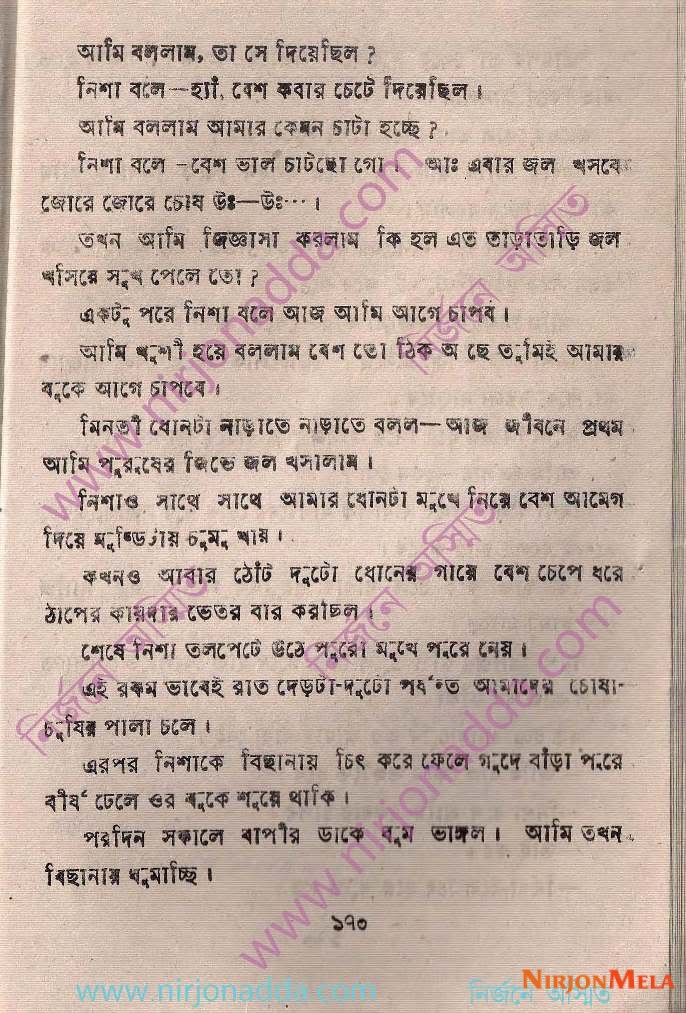 আমি বললাম, তা সে দিয়েছিল ?
নিশা বলে—হ্যাঁ, বেশ কবার চেটে দিয়েছিল ।
আমি বললাম আমার কেমন চাটা হচ্ছে ?
নিশা বলে -বেশ ভাল চাটছো গো । আঃ এবার জল খসবে
জোরে জোরে চোষ উঃ—উঃ··· ।
তখন আমি জিজ্ঞাসা করলাম কি হল এত তাড়াতাড়ি জল
খসিয়ে সুখ পেলে তো ?
একটু পরে নিশা বলে আজ আমি আগে চাপব ।
আমি খুশী হয়ে বললাম বেশ তো ঠিক অ ছে তুমিই আমার
বুকে আগে চাপবে ।
মিনতী ধোনটা নাড়াতে নাড়াতে বলল—আজ জীবনে প্রথম
আমি পুরুষের জিভে জল খসালাম ।
নিশাও সাথে সাথে আমার ধোনটা মুখে নিয়ে বেশ আমেগ
দিয়ে মুণ্ডিটায় চুমু খায় ।
কখনও আবার ঠোঁট দুটো ধোনের গায়ে বেশ চেপে ধরে
ঠাপের কায়দায় ভেতর বার করছিল ।
শেষে নিশা তলপেটে উঠে পুরো মুখে পুরে নেয় ।
এই রকম ভাবেই রাত দেড়টা-দুটো পর্যন্ত আমাদের চোষা-
চুষির পালা চলে ।
এরপর নিশাকে বিছানায় চিৎ করে ফেলে গুদে বাঁড়া পুরে
বীর্য ঢেলে ওর বুকে শুয়ে থাকি ।
পরদিন সকালে বাপীর ডাকে ঘুম ভাঙ্গল । আমি তখন
বিছানায় ঘুমাচ্ছি ।
১৭৩
www.nirjonadda.com
নির্জনে অস্মিত
www.nirjonadda.com
নির্জনে অস্মিত
নির্জনে অস্মিত
www.nirjonadda.com
www.nirjonadda.com
নির্জনে অস্মিত
NIRJONMELA